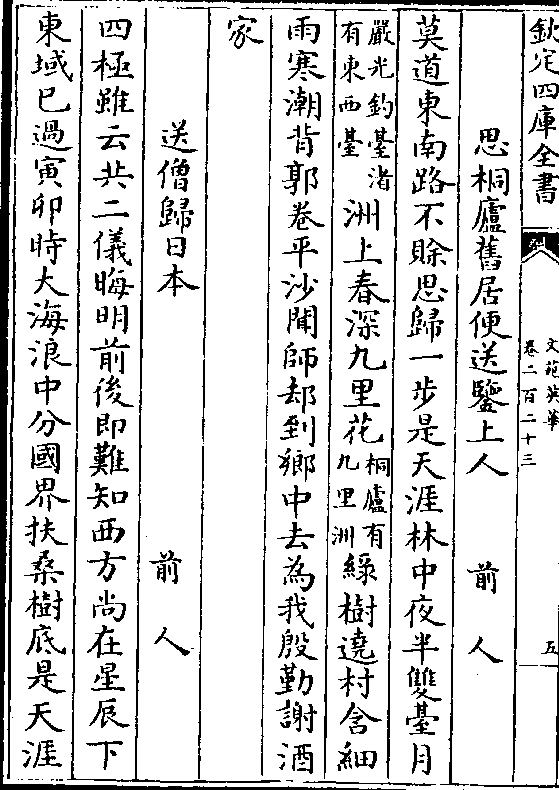 欽定四庫全書
文苑英華
卷二百二十三
五
思桐廬舊居便送鑒上人 前人
莫道東南路不賒思歸一步是天涯林中夜半雙臺月
嚴光釣臺渚有東西臺洲上春深九里花桐廬有九里洲綠樹遶村含細
雨寒潮背郭卷平沙聞師却到鄉中去為我殷勤謝酒
家
送僧歸日本 前人
四極雖云共二儀晦明前後即難知西方尚在星辰下
東域已過寅卯時大海浪中分國界扶桑樹底是天涯